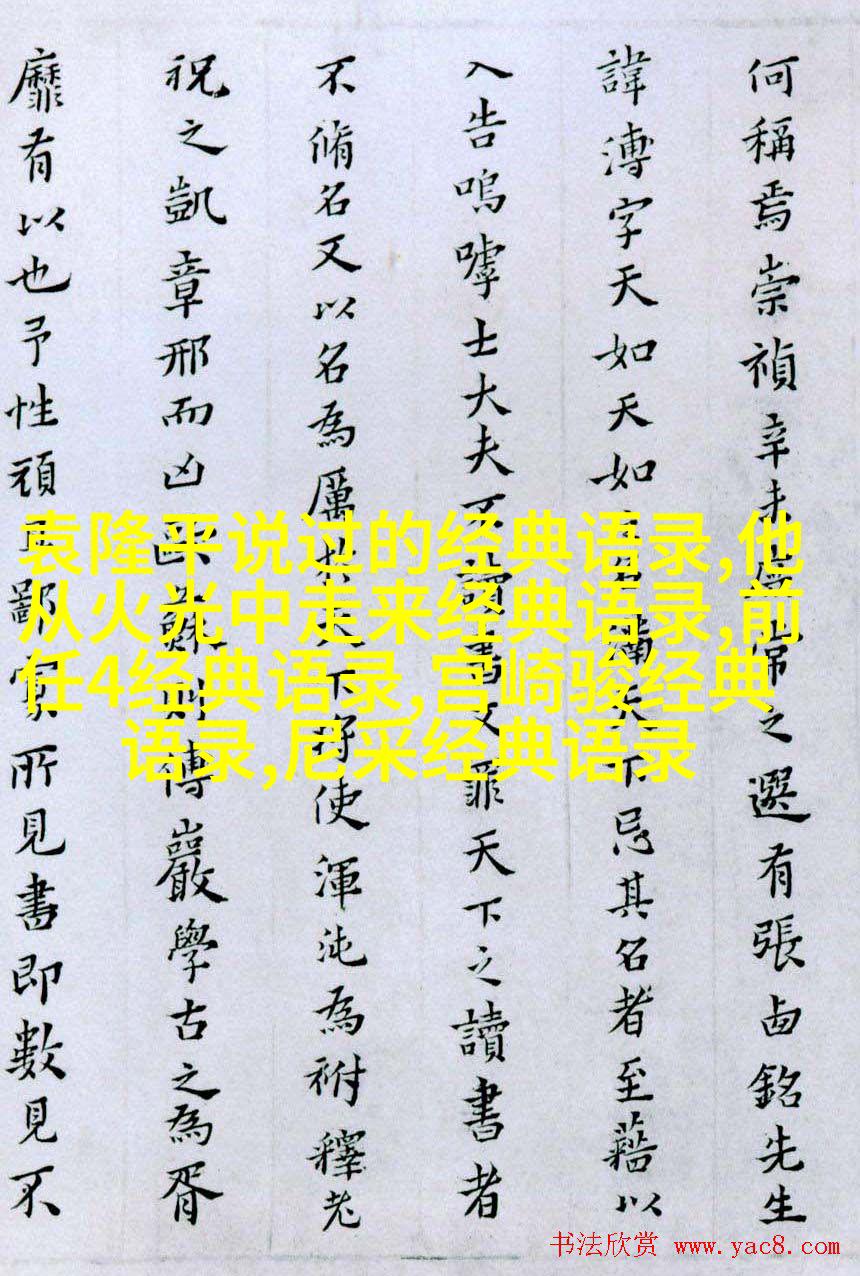 何稱焉崇禎辛未常之選有張卣銘先生
諱溥字天如天如之名滿天下忌其名者至藉以
入告嗚嘑士大夫不讀文罪天下之讀書者
不脩名又以名為厲於天下將使渾沌為祔釋老
祝之凱章邢而凶歐蘇則傅巖學古之為胥
靡有以也予性頑且鄙實所見書即數見不
袁隆平说过的经典语录,他
从火光中走来经典语录,前
任4经典语录,宫崎骏经典
语录,尼采经典语录
书法欣赏 www.yac8.com